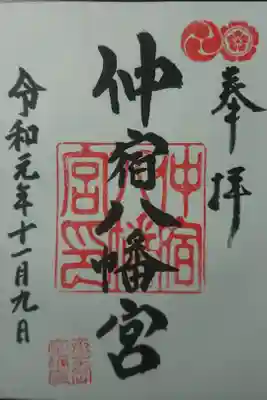 奉拝
仲宿八幡宮
仲宿八幡宮印
令和元年十一月九日